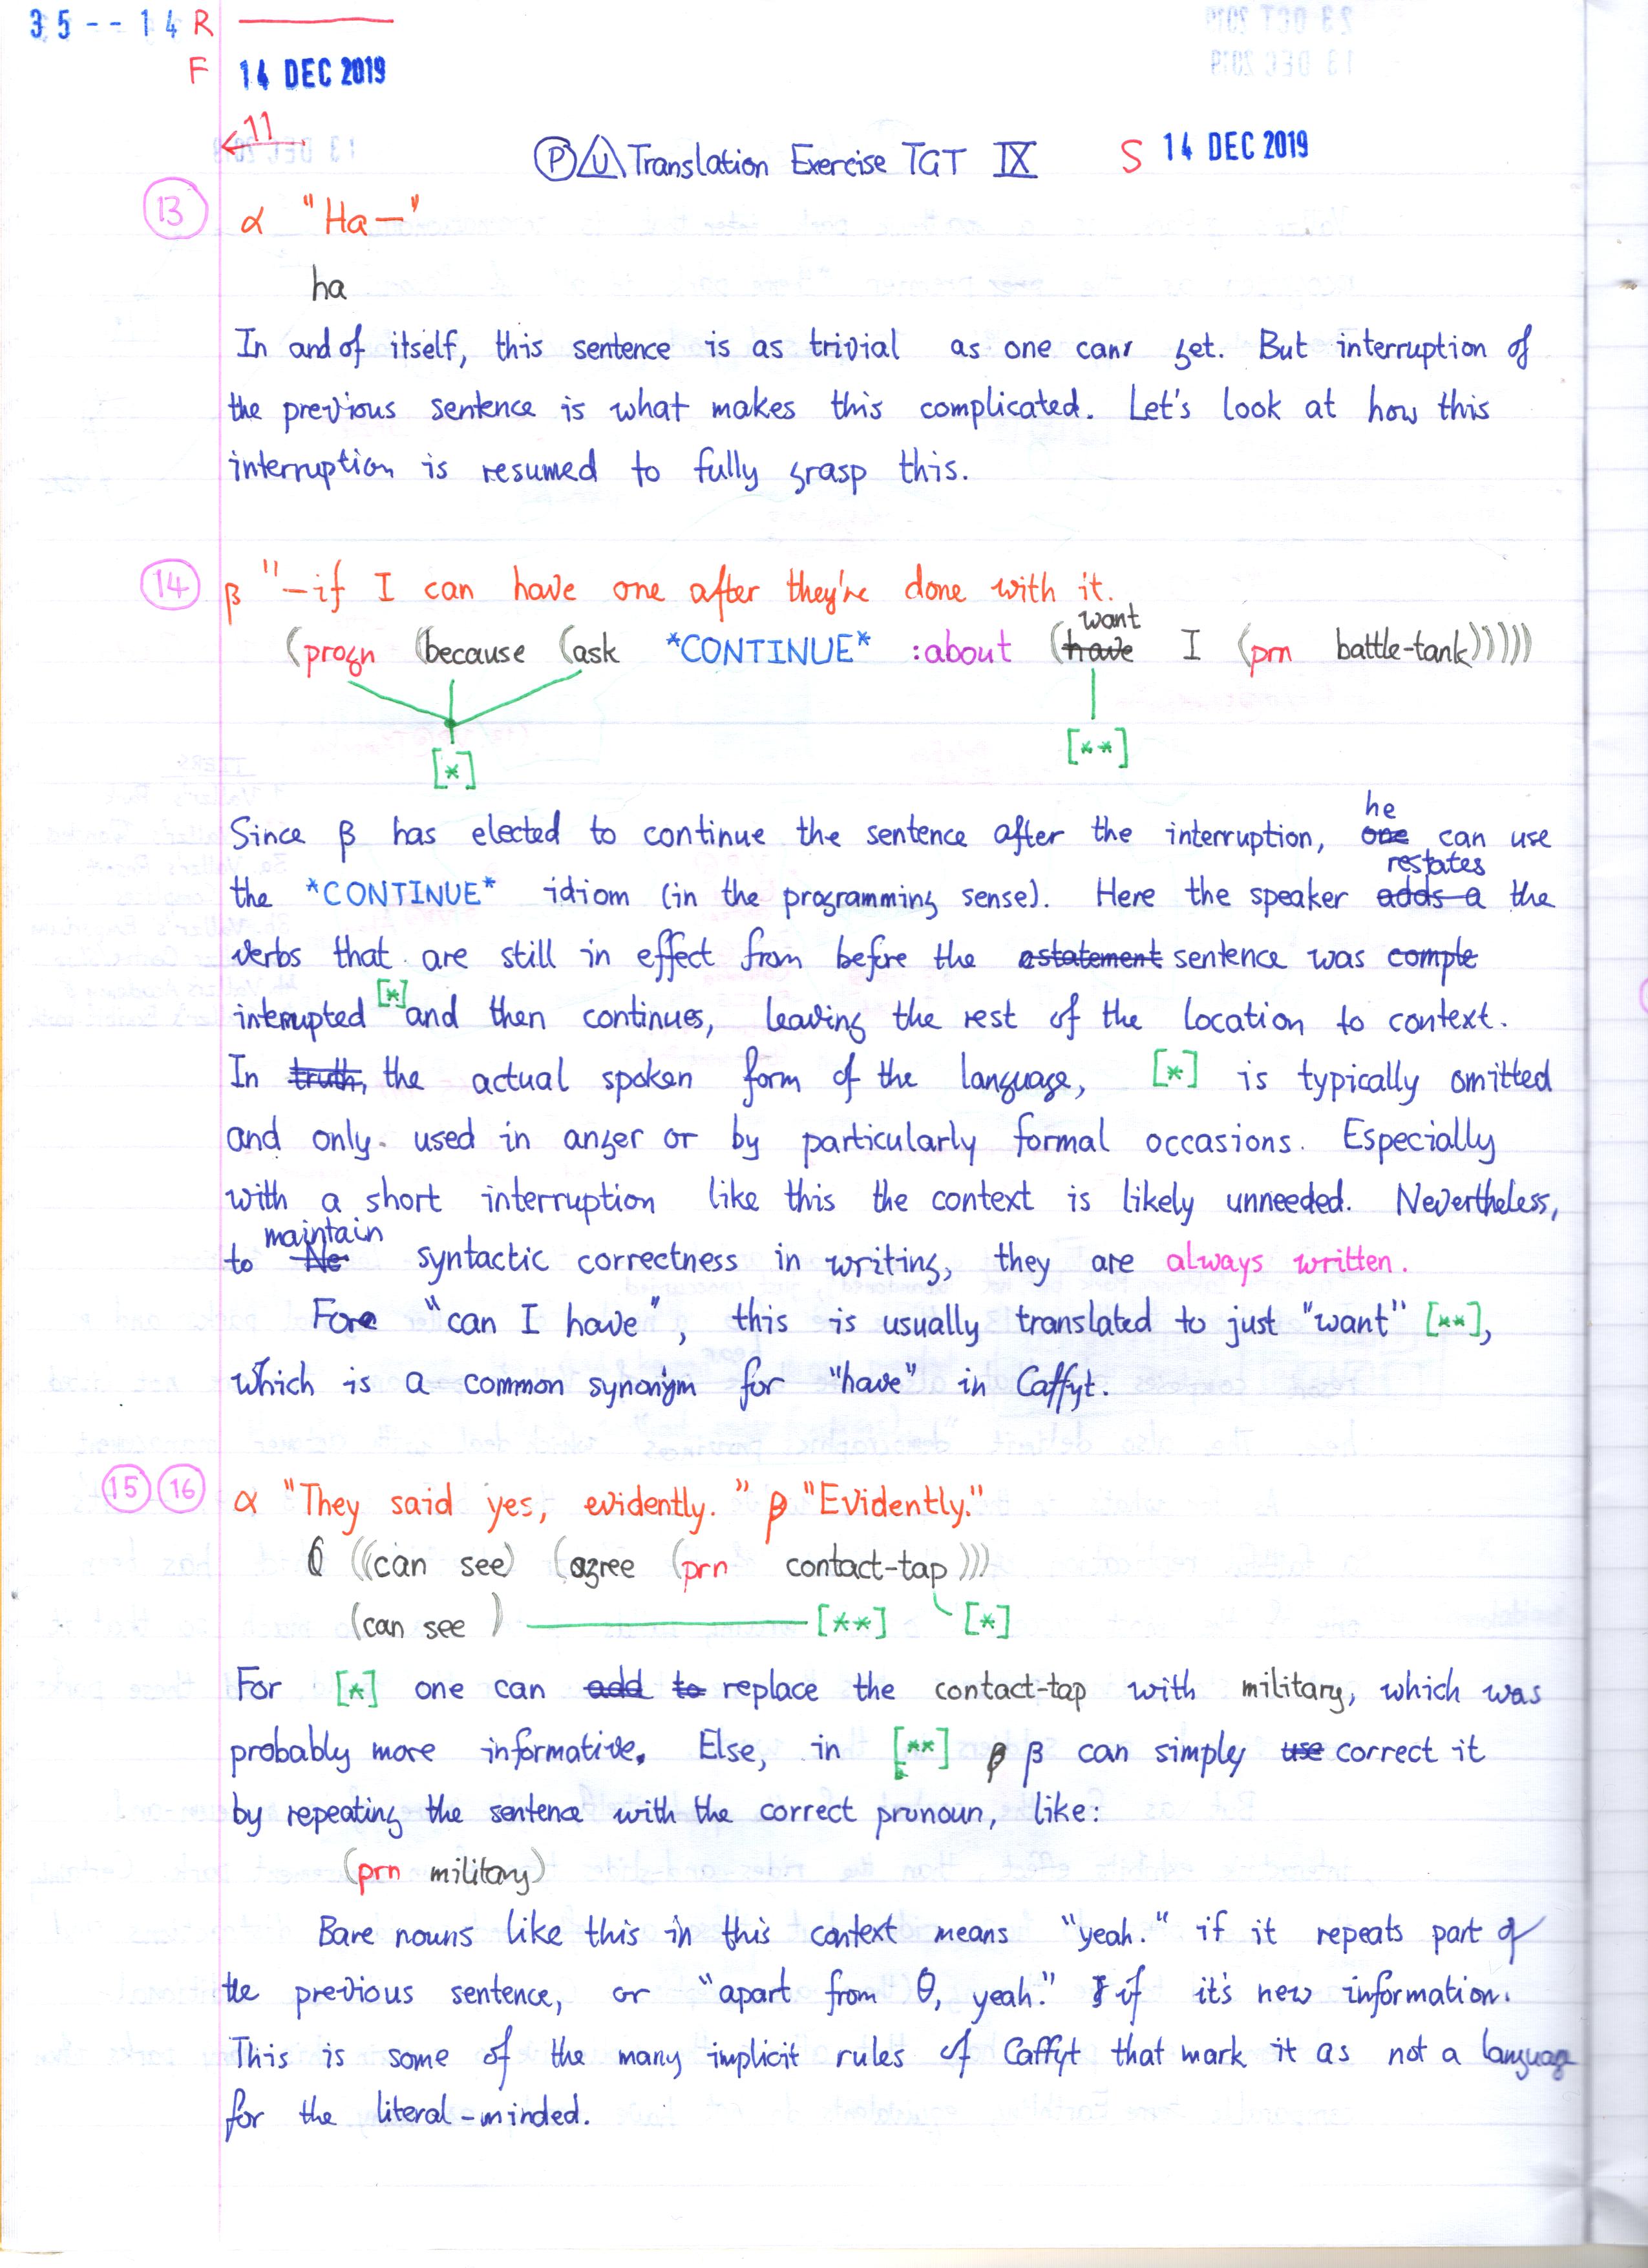 35--14 R
F 14 DEC 2019
11
Ⓟ U Translation Exercise TGT IX S 14 DEC 2019
13 α "Ha—"
ha
In and of itself, this sentence is as trivial as one can get. But interruption of
the previous sentence is what makes this complicated. Let's look at how this
interruption is resumed to fully grasp this.
14 β "—if I can have one after they're done with it.
want
(progn (because (ask *CONTINUE* :about (have I (prn battle-tank)))))
[*] [**]
he
Since β has elected to continue the sentence after the interruption, one can use
restates
the *CONTINUE* idiom (in the programming sense). Here the speaker adds a the
verbs that are still in effect from before the estatement sentence was comple
interrupted [*] and then continues, leaving the rest of the location to context.
In truth, the actual spoken form of the language, [*] is typically omitted
and only used in anger or by particularly formal occasions. Especially
with a short interruption like this the context is likely unneeded. Nevertheless,
maintain
to Ne syntactic correctness in writing, they are always written.
Fore "can I have", this is usually translated to just "want" [**],
which is a common synonym for "have" in Caffyt.
15 16 α "They said yes, evidently." β "Evidently."
((can see) (agree (prn contact-tap)))
(can see) [**] [*]
For [*] one can add to replace the contact-tap with military, which was
probably more informative. Else, in [**] β β can simply use correct it
by repeating the sentence with the correct pronoun, like:
(prn military)
Bare nouns like this in this context means "yeah." if it repeats part of
the previous sentence, or "apart from θ, yeah." if it's new information.
This is some of the many implicit rules of Caffyt that mark it as not a language
for the literal-minded.